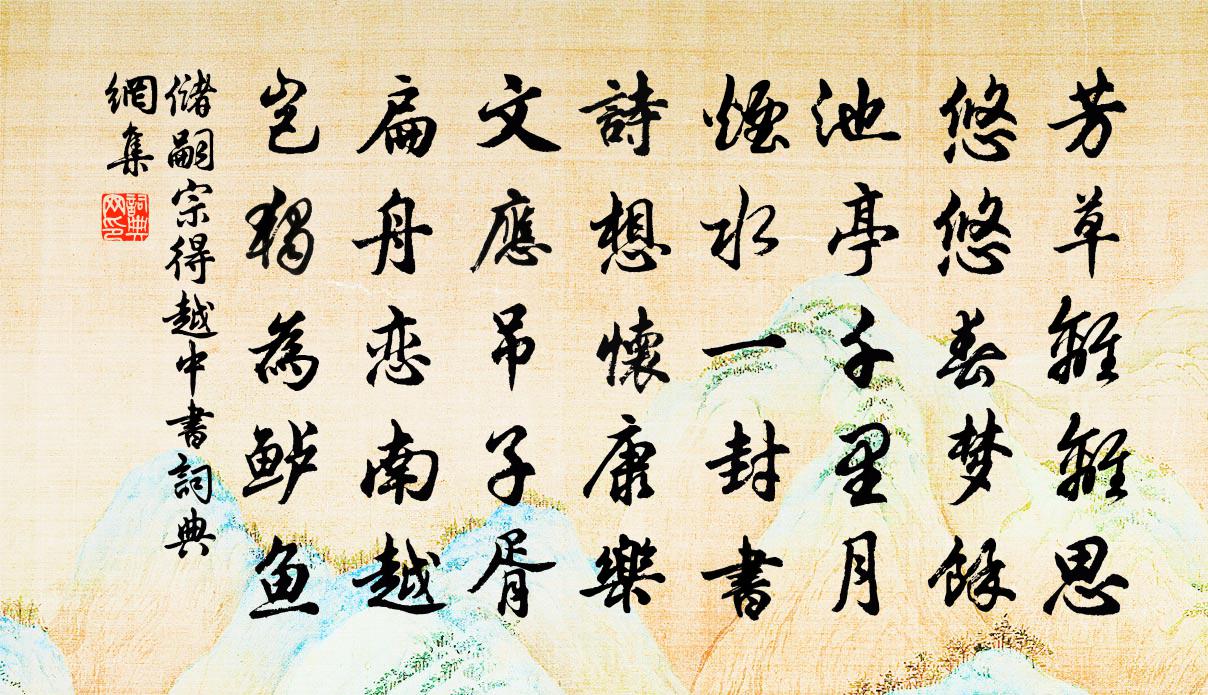 芳草離離思
悠悠春梦餘
池亭千里月
煙水一封書
詩想懷康樂
文應吊子胥
扁舟恋南越
岂獨為鲈魚
儲嗣宗得越中書詞典
網集
詞典
网印